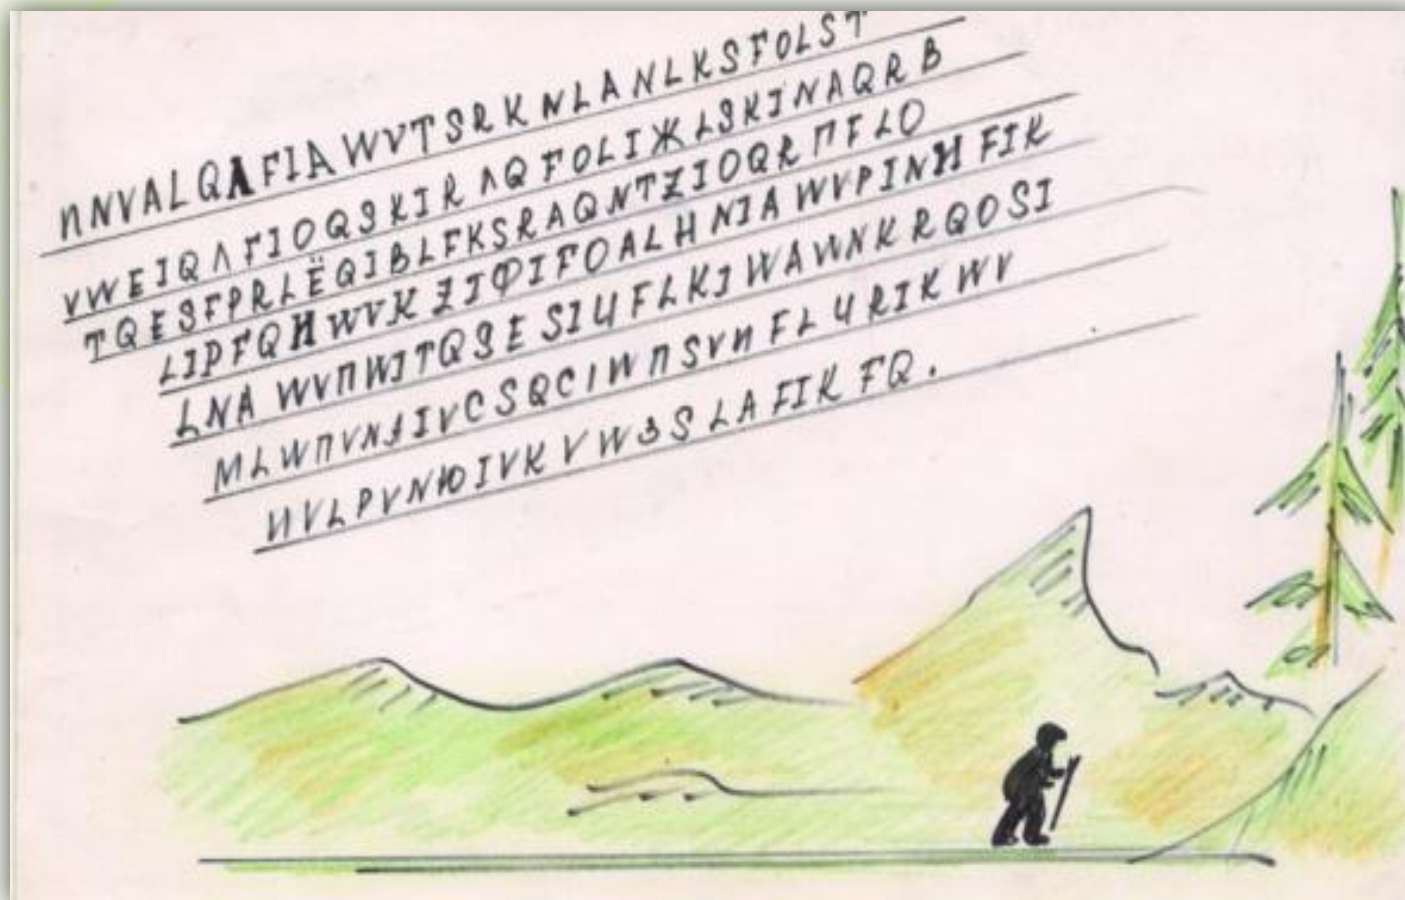 ПNVALQΛFIAWVTSRKNLANLKSFOLST
VWEIQΛFIOQSKIRΛQFOLIЖLSKINAQRB
TQESFPRLЁQIBLFKSRAQNTZIOQRПFLO
LIPFQИWVKZIФIFOALHNIAWVPINИFIK
LNAWVПWITQSESIЦFLKIWAWNKRQOSI
MLWПVNΛIVCSQCIWПSVИFLЧRIKWV
ИVLPVNЮIVKVWЗSLAFIKFQ.